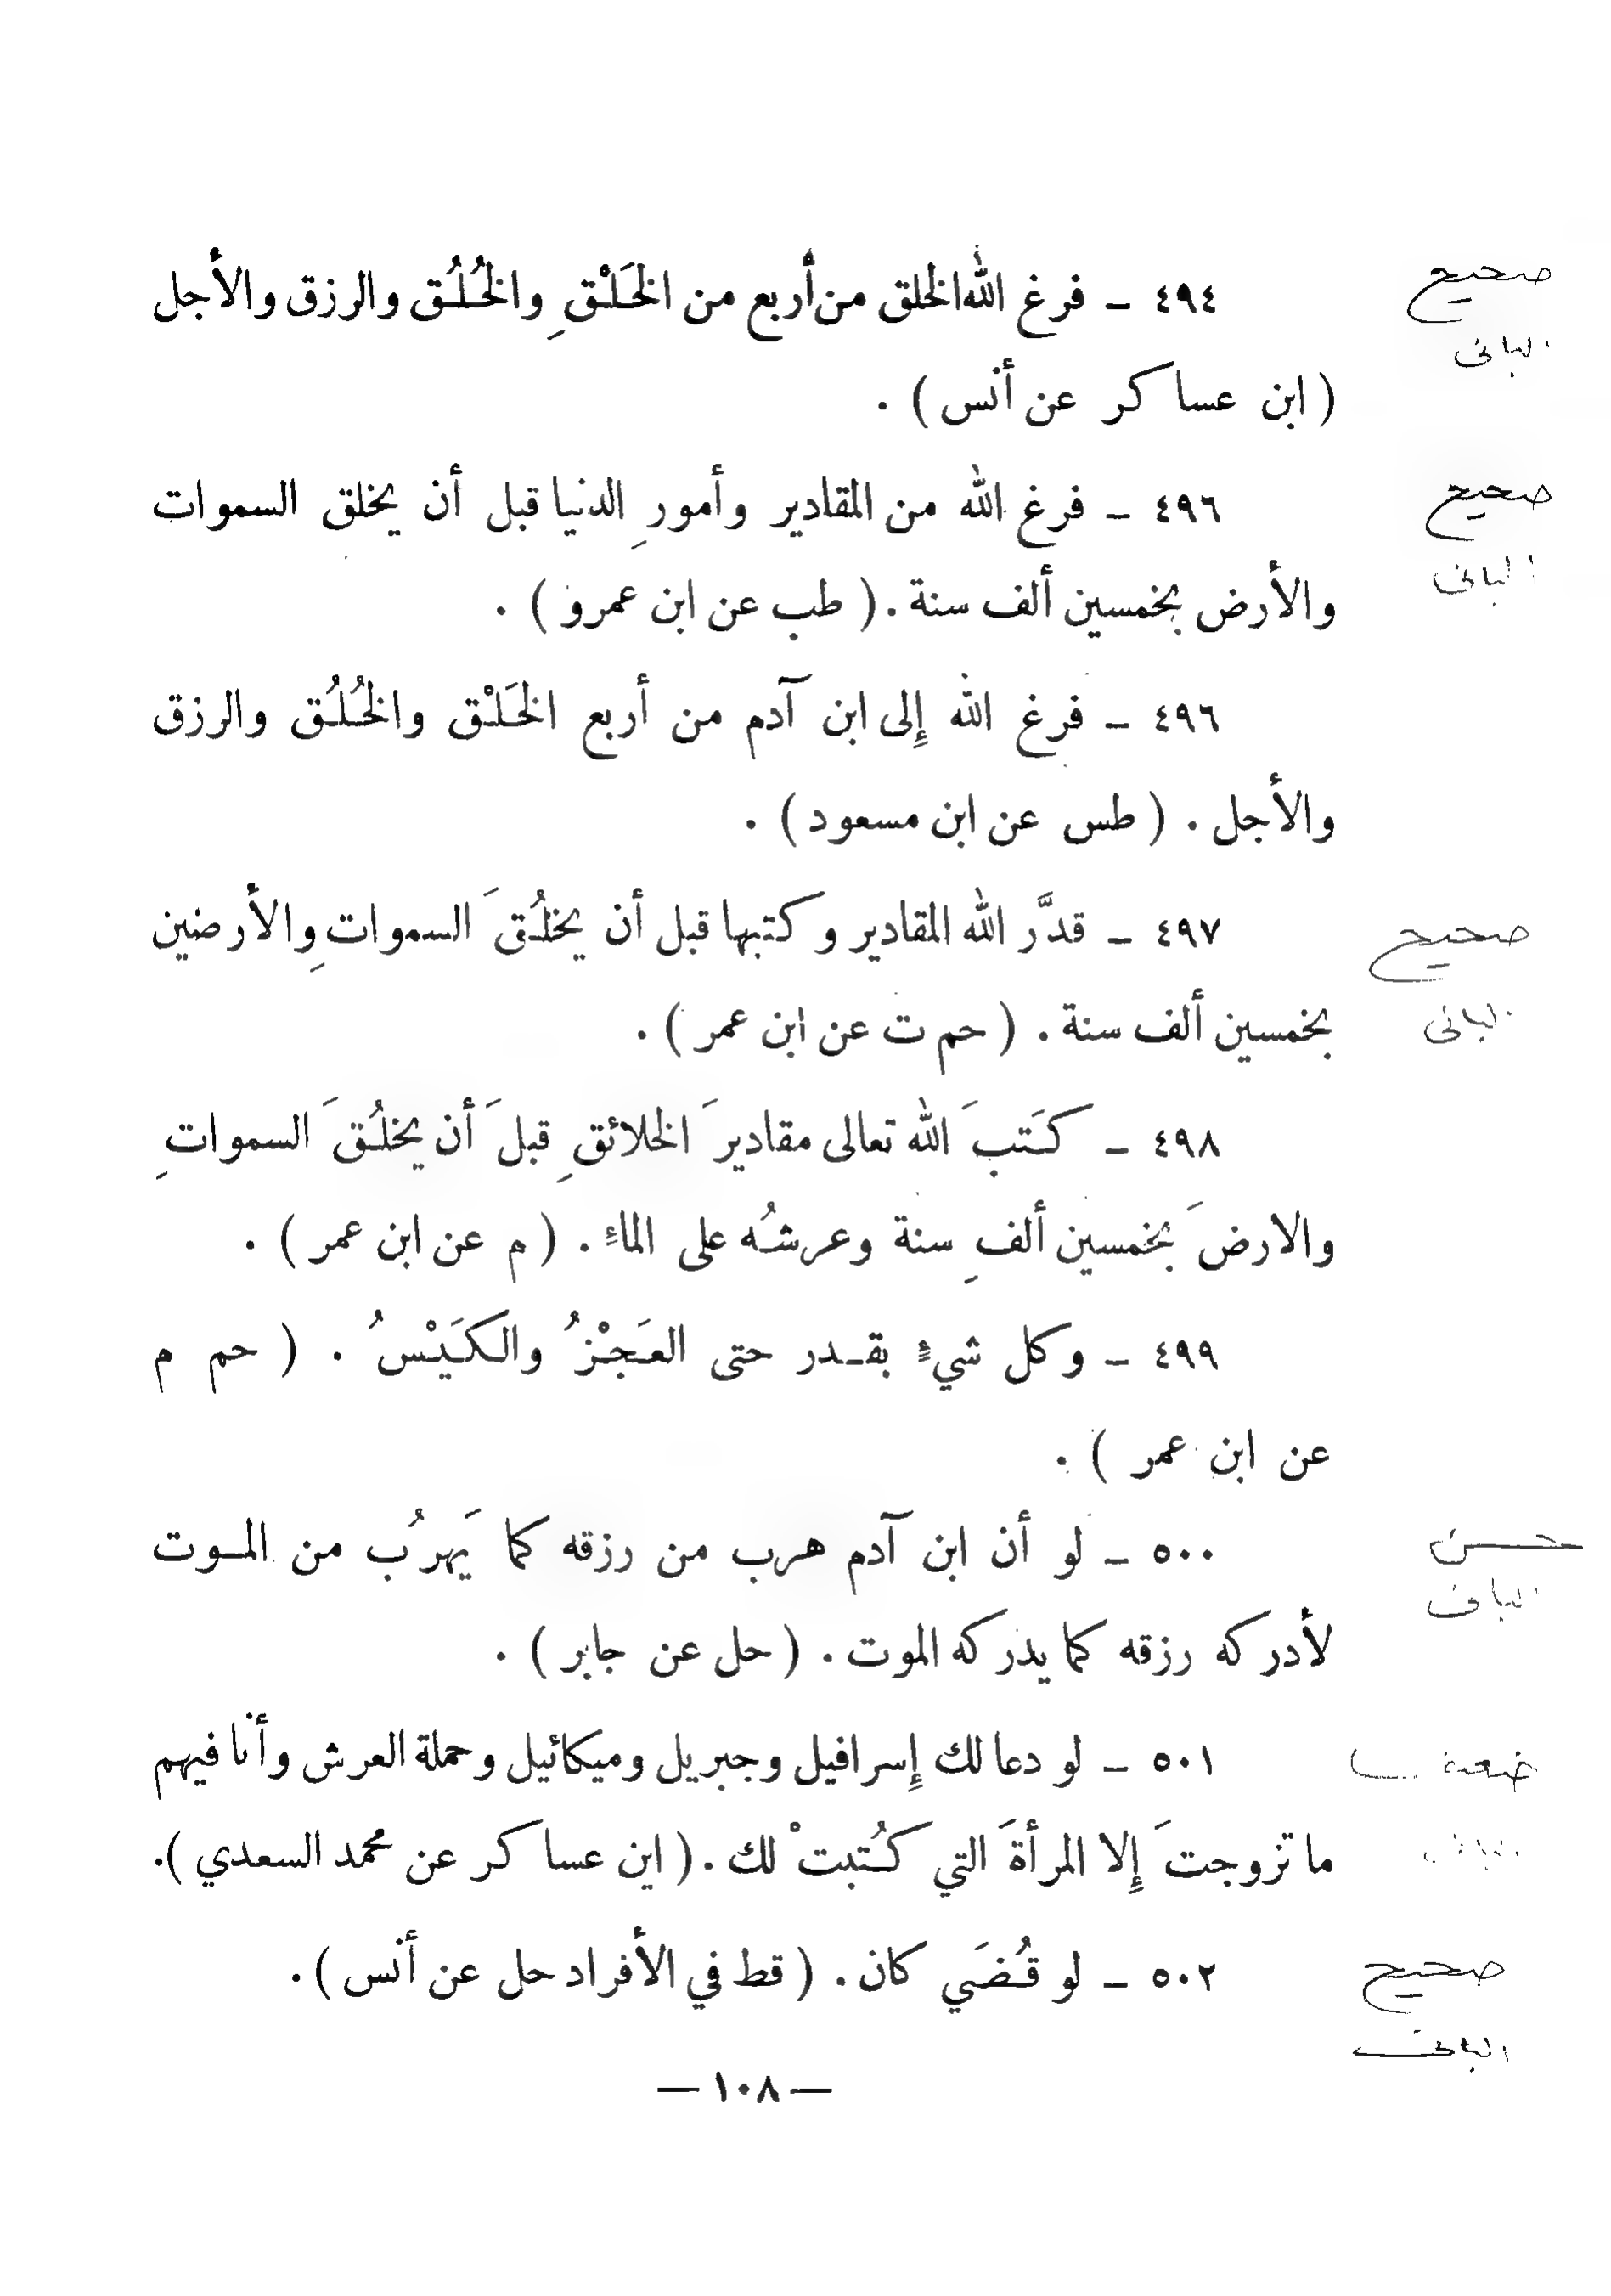 ٤٩٤ ـ فرغ الله الخلق من أربع من الخَلْقِ والخُلُق والرزق والأجل
صحيح
البانى
( ابن عساكر عن أنس ) .
٤٩٦ ـ فرغ الله من المقادير وأمورِ الدنيا قبل أن يخلق السموات
صحيح
البانى
والأرض بخمسين ألف سنة . ( طب عن ابن عمرو ) .
٤٩٦ ـ فرغ الله إِلى ابن آدم من أربع الخَلْق والخُلُق والرزق
والأجل . ( طس عن ابن مسعود ) .
٤٩٧ ـ قدَّر الله المقادير وكتبها قبل أن يخلُقَ السمواتِ والأرضين
صحيح
البانى
بخمسين ألف سنة . ( حم ت عن ابن عمر ) .
٤٩٨ ـ كَتبَ الله تعالى مقاديرَ الخلائقِ قبلَ أن يخلُقَ السمواتِ
والارضَ بخمسين ألفِ سنة وعرشُه على الماءِ . ( م عن ابن عمر ) .
٤٩٩ ـ وكل شيءٍ بقـدر حتى العَجْزُ والكَيْسُ . ( حم م
عن ابن عمر ) .
٥٠٠ ـ لو أن ابن آدم هرب من رزقه كما يَهربُ من المـوت
حسن
البانى
لأدركه رزقه كما يدركه الموت . ( حل عن جابر ) .
٥٠١ ـ لو دعا لك إِسرافيل وجبريل وميكائيل وحملة العرش وأنا فيهم
ضعيف
ما تزوجتَ إِلا المرأةَ التي كُتبتْ لك . ( ابن عساكر عن محمد السعدي ) .
٥٠٢ ـ لو قُضَي كان . ( قط في الأفراد حل عن أنس ) .
صحيح
البانى
— ١٠٨ —